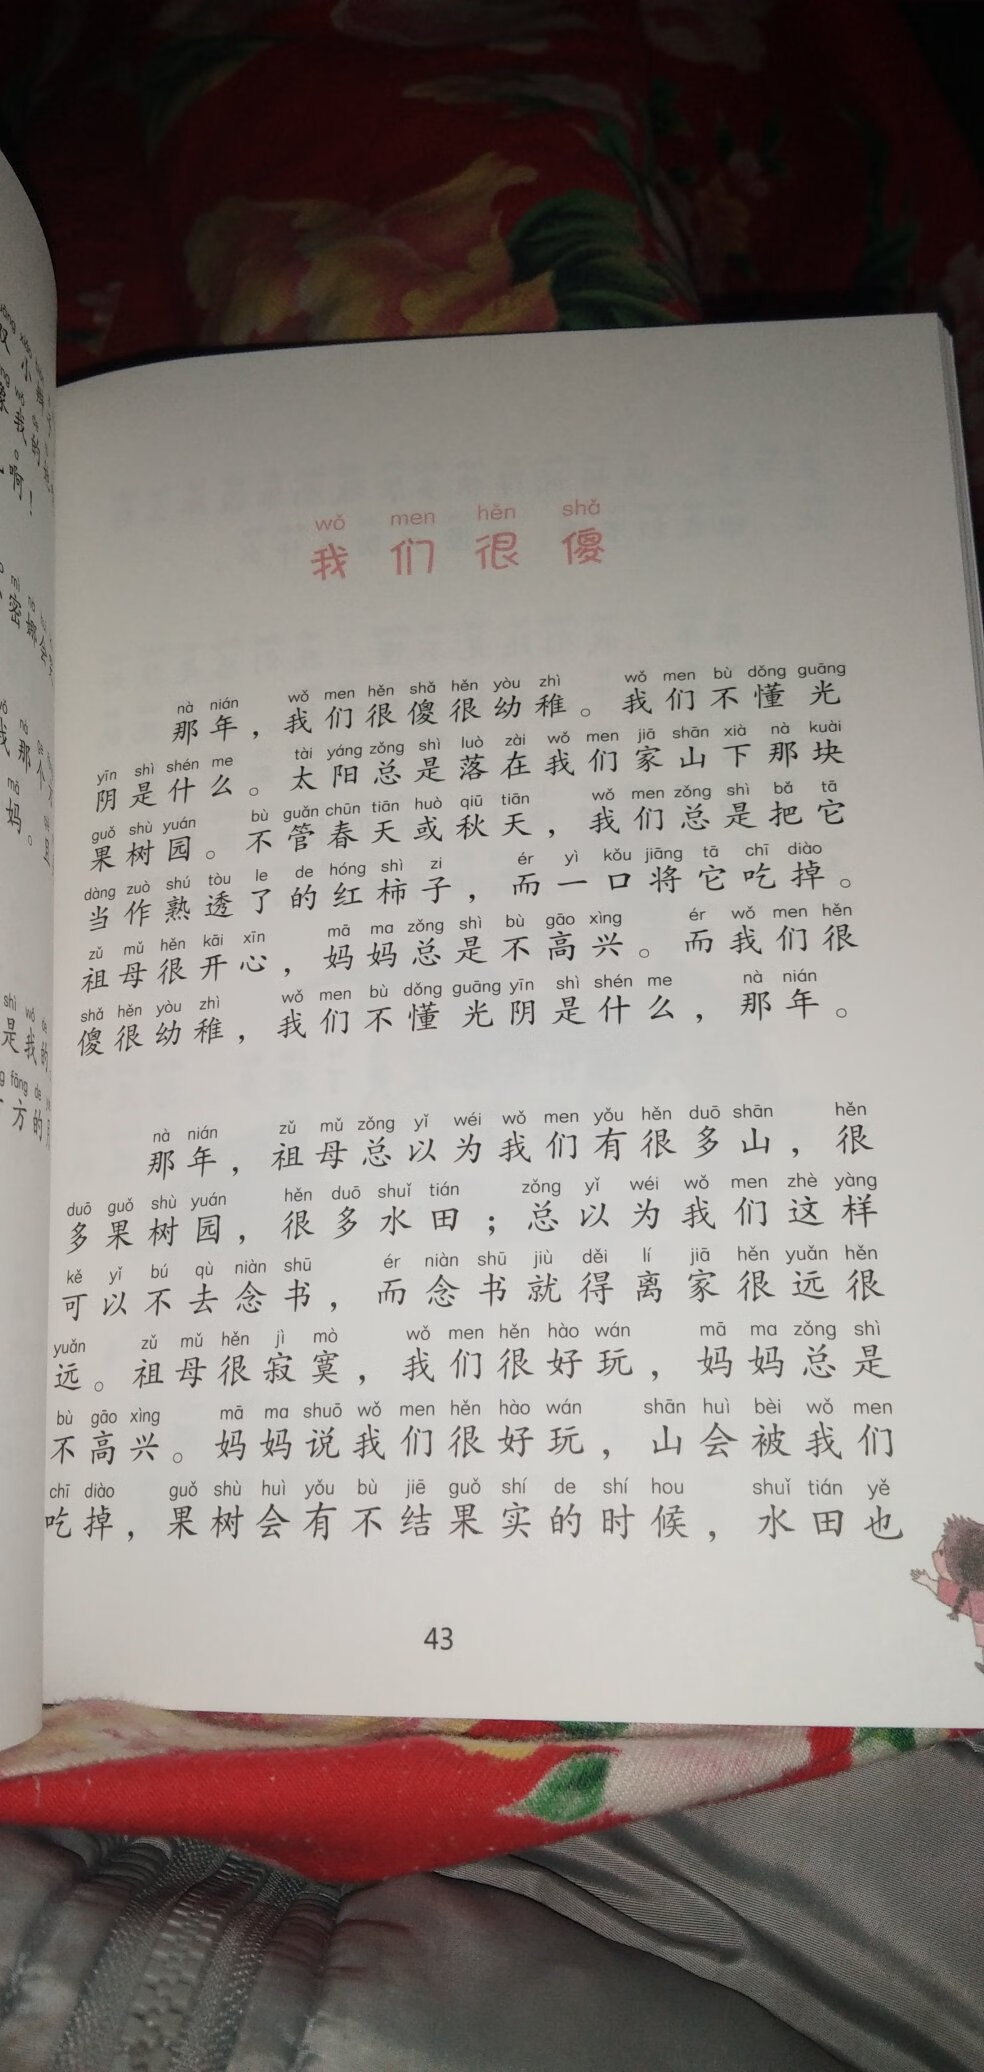 wǒ men hěn shǎ
我们很傻
nà nián wǒ men hěn shǎ hěn yòu zhì wǒ men bù dǒng guāng
那年，我们很傻很幼稚。我们不懂光
yīn shì shén me tài yáng zǒng shì luò zài wǒ men jiā shān xià nà kuài
阴是什么。太阳总是落在我们家山下那块
guǒ shù yuán bù guǎn chūn tiān huò qiū tiān wǒ men zǒng shì bǎ tā
果树园。不管春天或秋天，我们总是把它
dàng zuò shú tòu le de hóng shì zi ér yì kǒu jiāng tā chī diào
当作熟透了的红柿子，而一口将它吃掉。
zǔ mǔ hěn kāi xīn mā ma zǒng shì bù gāo xìng ér wǒ men hěn
祖母很开心，妈妈总是不高兴。而我们很
shǎ hěn yòu zhì wǒ men bù dǒng guāng yīn shì shén me nà nián
傻很幼稚，我们不懂光阴是什么，那年。
nà nián zǔ mǔ zǒng yǐ wéi wǒ men yǒu hěn duō shān hěn
那年，祖母总以为我们有很多山，很
duō guǒ shù yuán hěn duō shuǐ tián zǒng yǐ wéi wǒ men zhè yàng
多果树园，很多水田；总以为我们这样
kě yǐ bú qù niàn shū ér niàn shū jiù děi lí jiā hěn yuǎn hěn
可以不去念书，而念书就得离家很远很
yuǎn zǔ mǔ hěn jì mò wǒ men hěn hào wán mā ma zǒng shì
远。祖母很寂寞，我们很好玩，妈妈总是
bù gāo xìng mā ma shuō wǒ men hěn hào wán shān huì bèi wǒ men
不高兴。妈妈说我们很好玩，山会被我们
chī diào guǒ shù huì yǒu bù jiē guǒ shí de shí hou shuǐ tián yě
吃掉，果树会有不结果实的时候，水田也
43